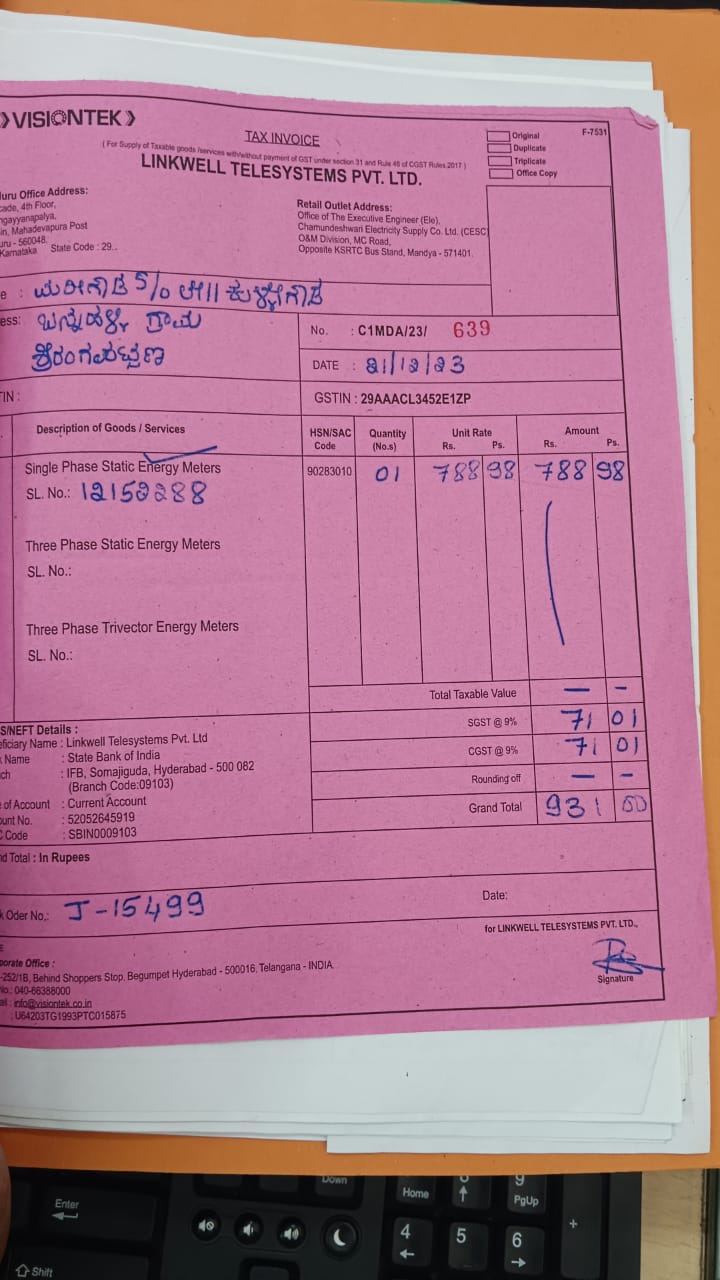 VISIONTEK
TAX INVOICE
( For Supply of Taxable goods /services with/without payment of GST under section 31 and Rule 46 of CGST Rules.2017 )
LINKWELL TELESYSTEMS PVT. LTD.
Original
Duplicate
Triplicate
Office Copy
F-7531
uru Office Address:
cade, 4th Floor,
ngayyanapalya,
in, Mahadevapura Post
uru - 560048.
Karnataka State Code : 29..
Retail Outlet Address:
Office of The Executive Engineer (Ele),
Chamundeshwari Electricity Supply Co. Ltd. (CESC)
O&M Division, MC Road,
Opposite KSRTC Bus Stand, Mandya - 571401.
e : ಮರೀಗೌಡ S/o ಲೇ||
ess: ಗ್ರಾಮ
ಶ್ರೀರಂಗಪಟ್ಟಣ
No. : C1MDA/23/ 639
DATE : 21/12/23
TIN :
GSTIN : 29AAACL3452E1ZP
Description of Goods / Services
HSN/SAC Code
Quantity (No.s)
Unit Rate Rs. Ps.
Amount Rs. Ps.
Single Phase Static Energy Meters 90283010 01 788 98 788 98
SL. No.: 12152288
Three Phase Static Energy Meters
SL. No.:
Three Phase Trivector Energy Meters
SL. No.:
Total Taxable Value — -
SGST @ 9% 71 01
CGST @ 9% 71 01
Rounding off — -
Grand Total 931 00
S/NEFT Details :
eficiary Name : Linkwell Telesystems Pvt. Ltd
k Name : State Bank of India
ch : IFB, Somajiguda, Hyderabad - 500 082
(Branch Code:09103)
e of Account : Current Account
ount No. : 52052645919
C Code : SBIN0009103
nd Total : In Rupees
k Oder No.: J-15499
Date:
for LINKWELL TELESYSTEMS PVT. LTD.,
Signature
porate Office :
-252/1B, Behind Shoppers Stop, Begumpet Hyderabad - 500016, Telangana - INDIA.
No.: 040-66388000
ail : info@visiontek.co.in
: U64203TG1993PTC015875
Enter
Shift
Down
Home
9
PgUp
4
5
6
+